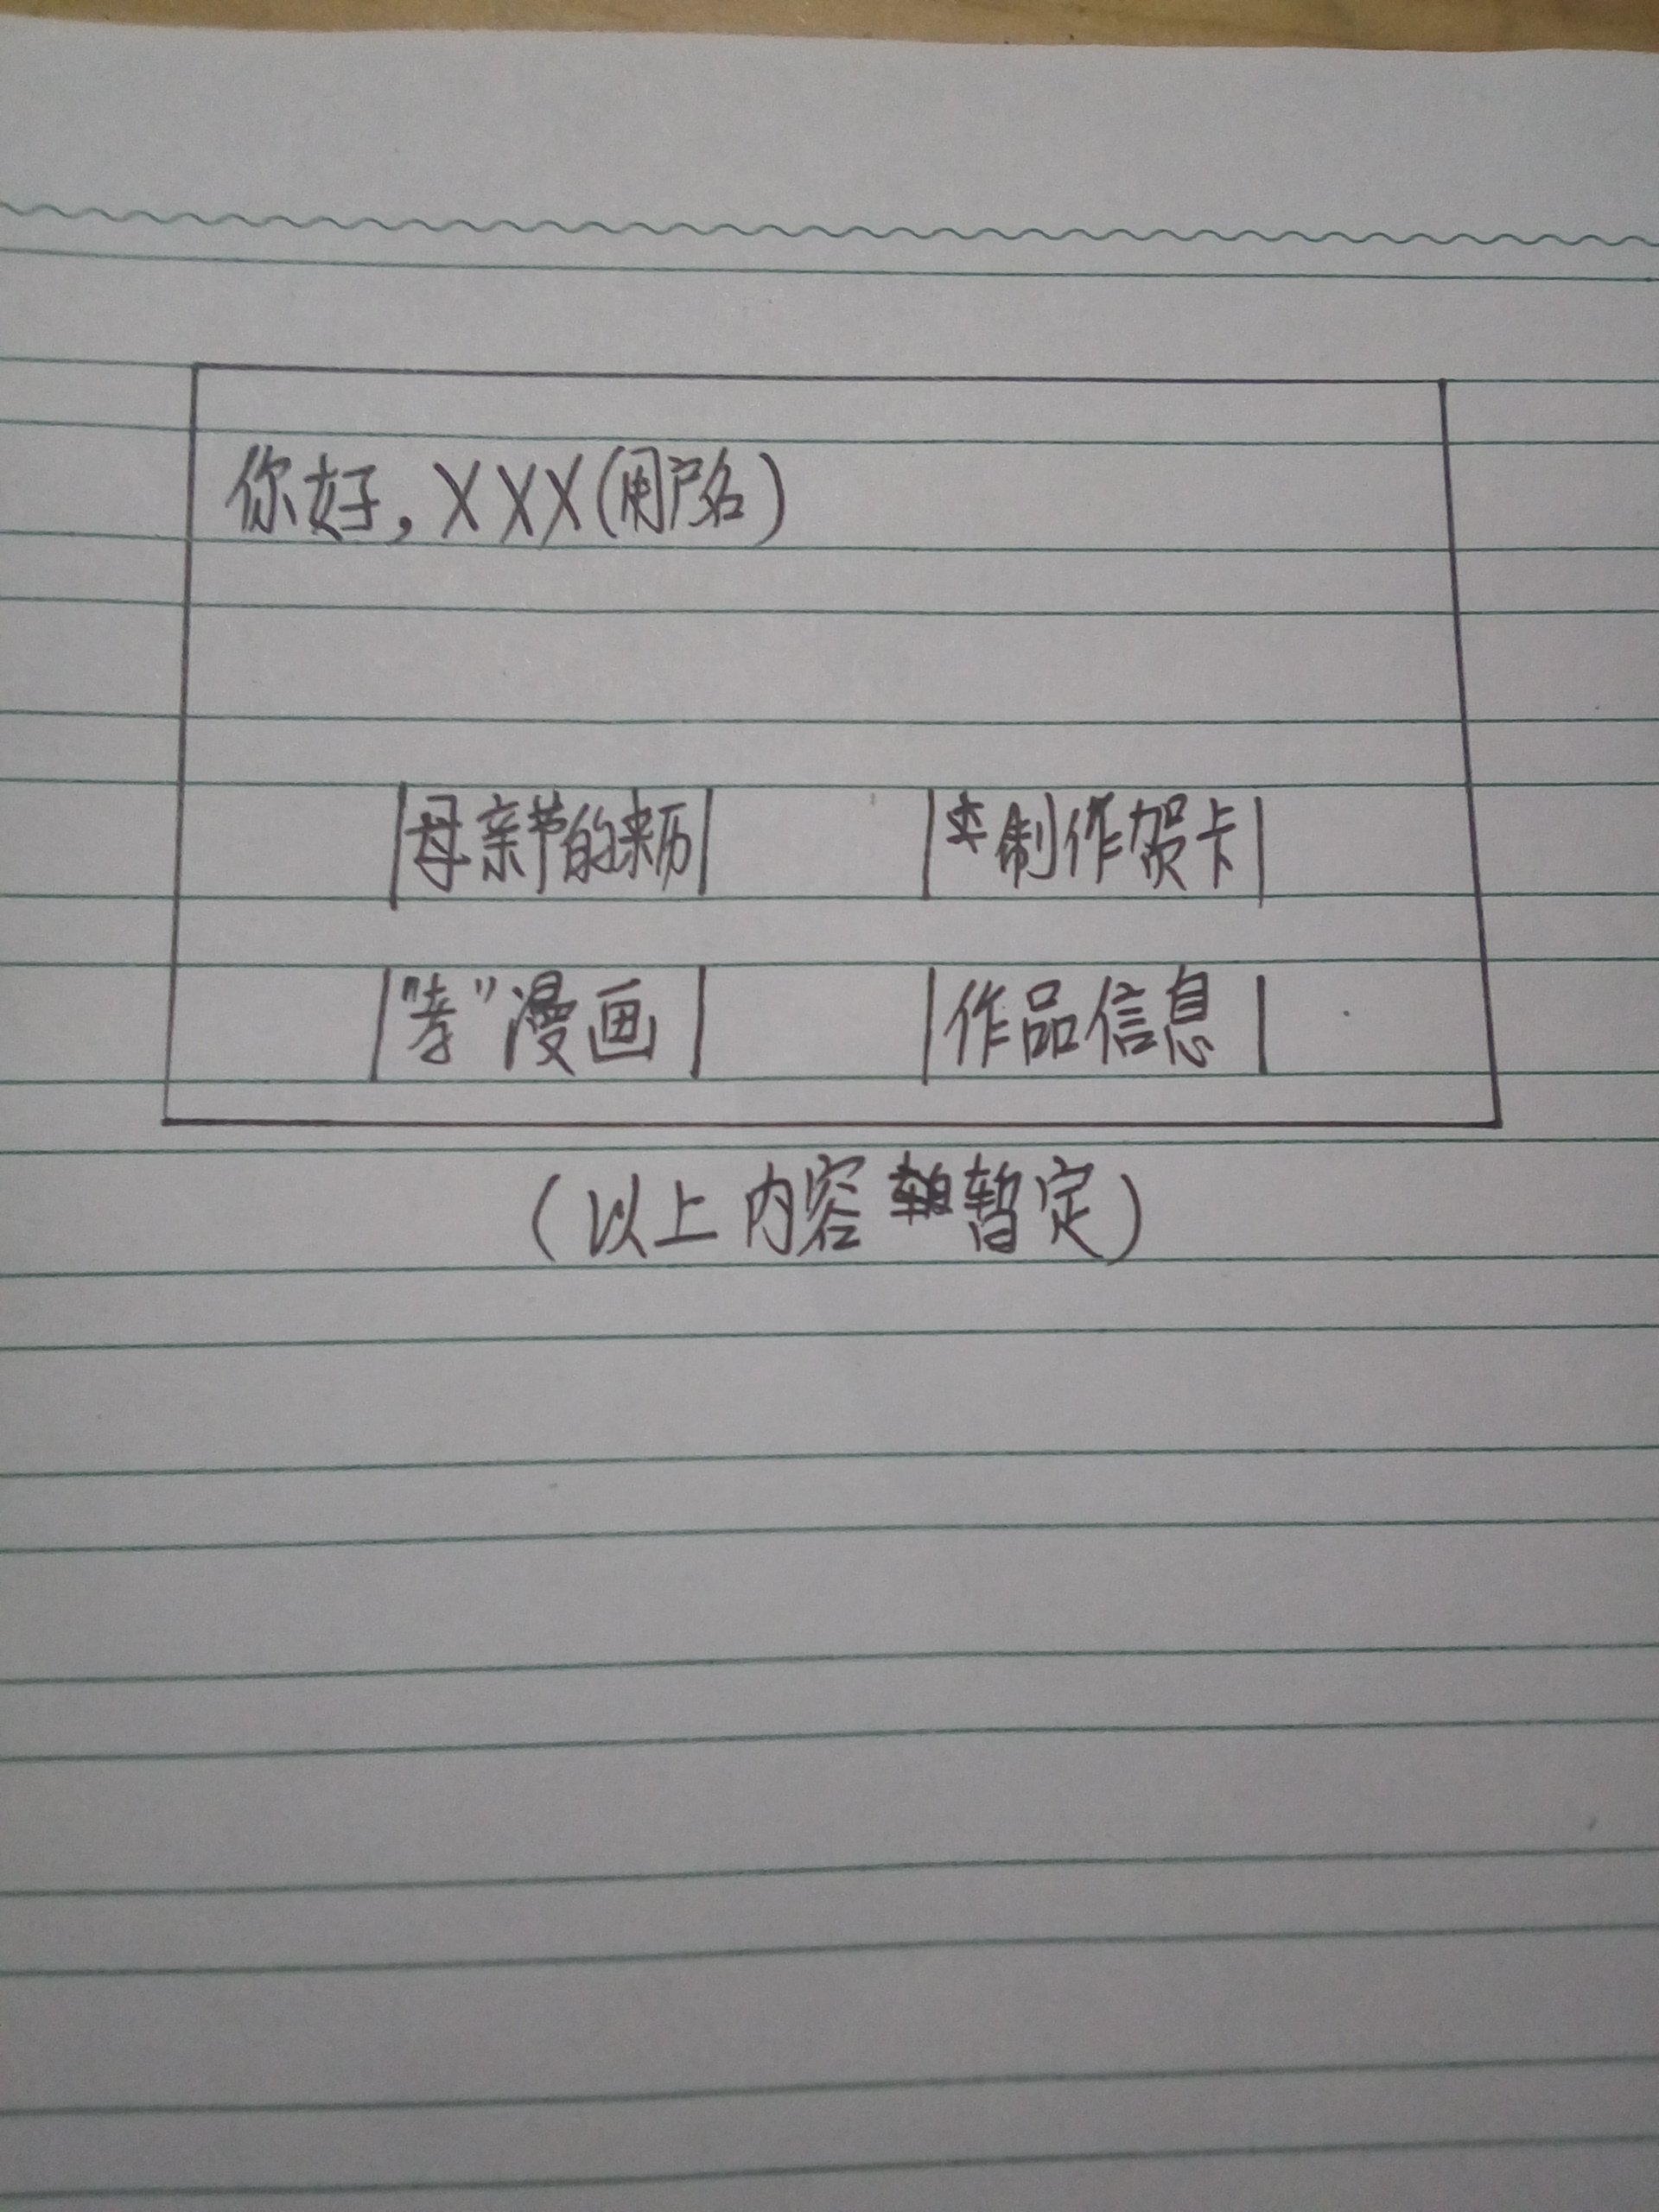 你好,XXX(用户名)
母亲节的来历 *制作贺卡
"孝"漫画 作品信息
(以上内容暂定)